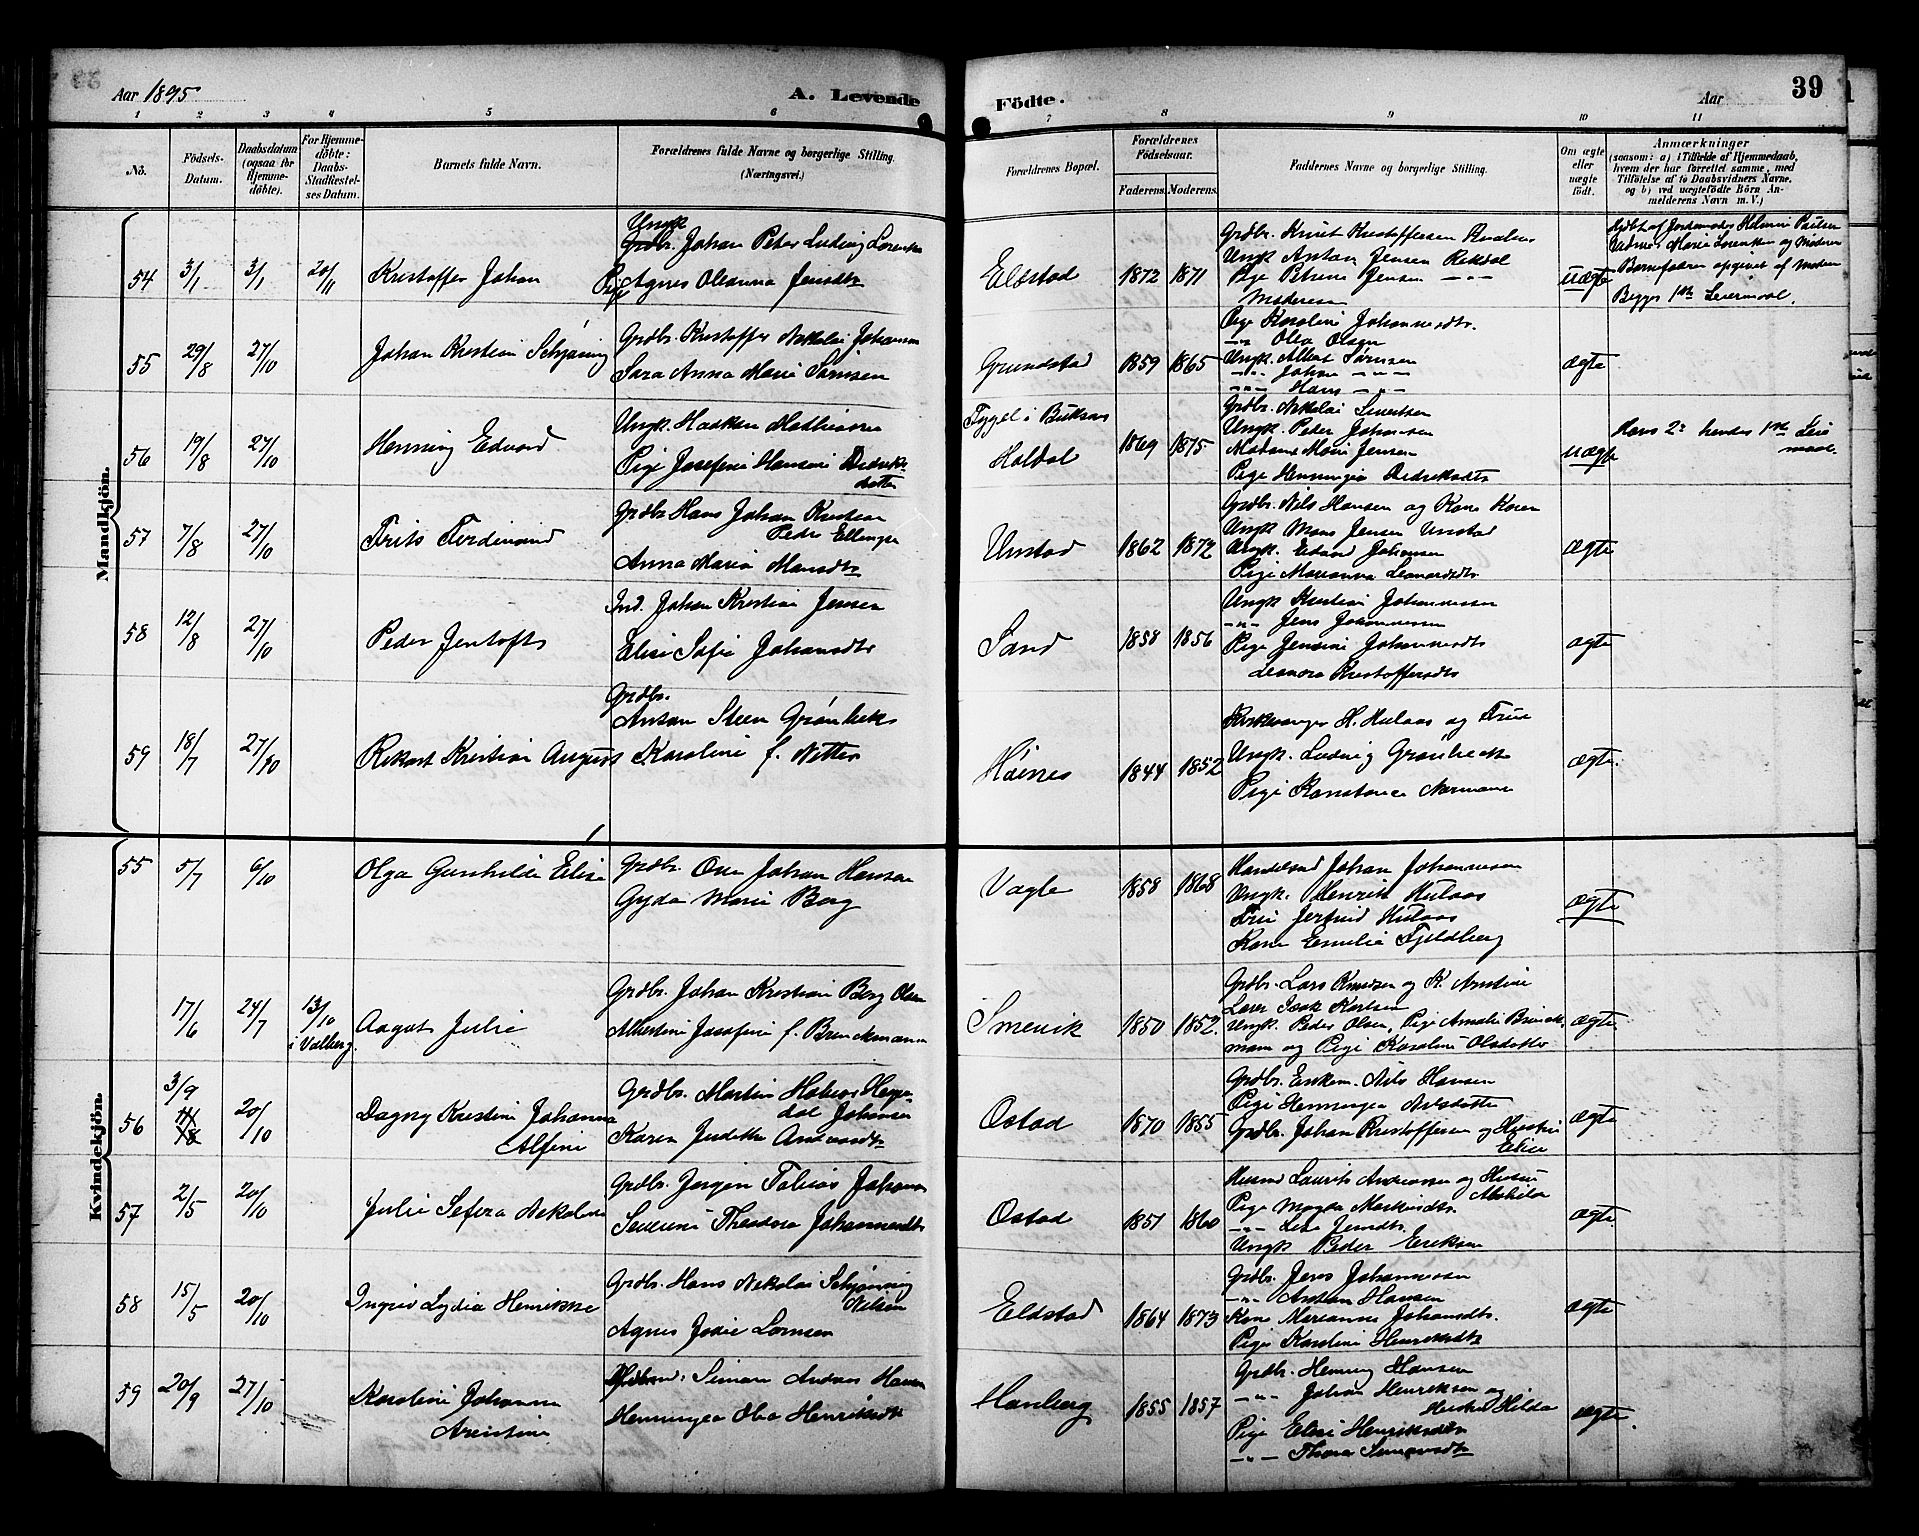 39
Aar 1895
A. Levende
Födte.
Aar
1 2 3 4 5 6 7 8 9 10 11
No.
Födsels-Datum.
Daabsdatum (ogsaa for Hjemmedöbte).
For Hjemmedöbte: Daabs-Stadfæstelses Datum.
Barnets fulde Navn.
Forældrenes fulde Navne og borgerlige Stilling. (Næringsvei.)
Forældrenes Bopæl.
Forældrenes Födselsaar.
Faderens. Moderens.
Faddernes Navne og borgerlige Stilling.
Om ægte eller uægte födt.
Anmærkninger
(saasom: a) i Tilfælde af Hjemmedaab, hvem der har forrettet samme, med Tilföielse af to Daabsvidners Navne, og b) ved uægtefödte Börn Anmelderens Navn m. V.)
Mandkjön.
54 3/1 3/1 20/11 Kristoffer Johan
Ungk. Johan Peter Ludvig Lorentsen
Pige Agnes Oleanna Jensdtr
Eldstad 1872 1871
Grdbr. Knut Kristoffersen
Ungk Anton Jensen Rekdal
Pige Petrine Jensen
Moderen
uægte
Hjdbt af Jordemoder Helmine Paulsen
Barnefader opgivet af Moderen
Begges 1ste Leiermaal.
55 29/8 27/10 Johan Kristian Schjöning
Grdbr. Kristoffer Nikolai Johansen
Sara Anna Marie Sörnsen
Grundstad 1859 1865
Pige Karoline Johannesdtr.
-"- Olea Olsen
Ungk. Albert Sörnsen
-"- Johan -"-
-"- Hans -"-
ægte
56 19/8 27/10 Henning Edvard
Ungk. Haakon Mathiasen
Pige Josefine Hansine Didriksdatter
Fygel i Buksnes
Holdal 1869 1875
Grdbr. Nikolai
Ungk. Peder Johansen
Madame Marie Jensen
Pige Henningia Didriksdtr
uægte
Hans 2det hendes 1ste Leiermaal.
57 7/8 27/10 Frits Ferdinand
Grdbr. Hans Johan Kristian
Peder Ellingsen
Anna Maria Mansdtr
Unstad 1862 1872
Grdbr. Nils Hansen og Kone Karen
Ungk Mons Jensen Unstad
Ungk. Edvard Johansen
Pige Marianna Leonardsdtr
ægte
58 12/8 27/10 Peder Jentoft
Ind. Johan Kristian Jensen
Elise Sofie Johansdtr
Sand 1858 1856
Ungk Kristian Johannessen
-"- Jens Johannessen
Pige Jensine Johannesdtr
Leonora Kristoffersdtr
ægte
59 18/7 27/10 Rikart Kristian August
Grdbr.
Anton Steen Grönbek
Karoline f. Nitter
Höines 1844 1852
Kirkesanger H. Hulaas og Frue
Ungk. Ludvig Grönbech
Pige Konstance Normann
ægte.
Kvindekjön.
55 5/7 6/10 Olga Gunhilde Elise
Grdbr. Ove Johan Hansen
Gyda Marie Berg
Vagle 1858 1868
Handelsmd Johan Johannessen
Ungk. Henrik Hulaas
Frue Jerfrid Hulaas
Kone Emilie Fjeldberg
ægte
17/6 24/7 13/10 i Valberg. Aagot Julie
Grdbr. Johan Kristian Berg Olsen
Albertine Josefine f. Brinckmann
Smevik 1850 1852
Grdbr. Lars Knudsen og K. Anstine
Lærer Isak Karlsen
Ungk. Peder Olsen, Pige Amalie Brinckmann og Pige Karoline Olsdatter
ægte
56 3/9 20/10 Dagny Kristine Johanna
Alfine
Grdbr. Martin Hagedal Johansen
Karen Judithe Andreasdtr
Ostad 1870 1855
Grdbr. Enkem. Nils Hansen
Pige Henningea Nilsdatter
Grdbr. Johan Kristoffersen og Hustru
Elise
ægte
57 2/5 20/10 Julie Sefera Nikoline
Grdbr. Jörgen Tobias Johansen
Severine Theodora Johannesdtr
Ostad 1851 1860
Husmd Laurits Andreassen og Hustru
Mathilda
Pige Magda Martinsdtr.
-"- Lise Jensdtr
Ungk Peder Eriksen
ægte
58 15/5 20/10 Ingrid Lydia Henrikke
Grdbr. Hans Nikolai Schjönning
Nilsen
Agnes Jodie Lornsen
Eldstad 1864 1873
Grdbr. Jens Johannesen
-"- Anton Hansen
Kone Marianne Johansdtr.
Pige Karoline Henriksdtr
ægte
59 20/9 27/10 Karoline Johanna
Arnstine
Simon Andreas Hansen
Henningea Oba Henriksdtr
Hanberg 1855 1857
Grdbr. Henning Hansen
-"- Johan Henriksen og
Hustru Hilda
Pige Elise Henriksdtr
-"- Thora Simonsdtr
ægte.